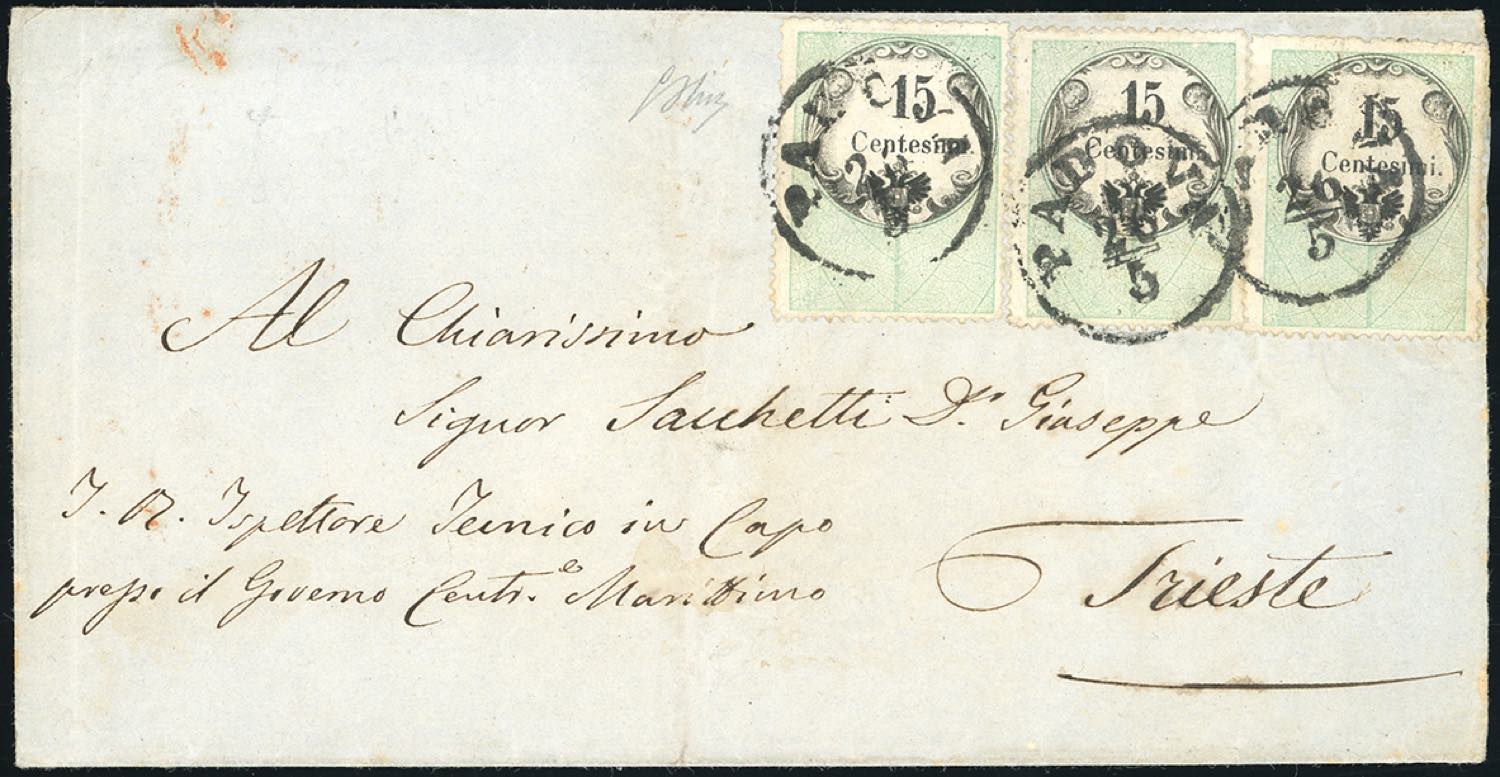 15
Centesimi.
15
Centesimi.
15
Centesimi.
PADOVA
26
5
PADOVA
26
5
26
5
Al Chiarissimo
Signor Sacchetti Dr. Giuseppe
I. R. Ispettore Tecnico in Capo
presso il Governo Centr.e Marittimo
Trieste